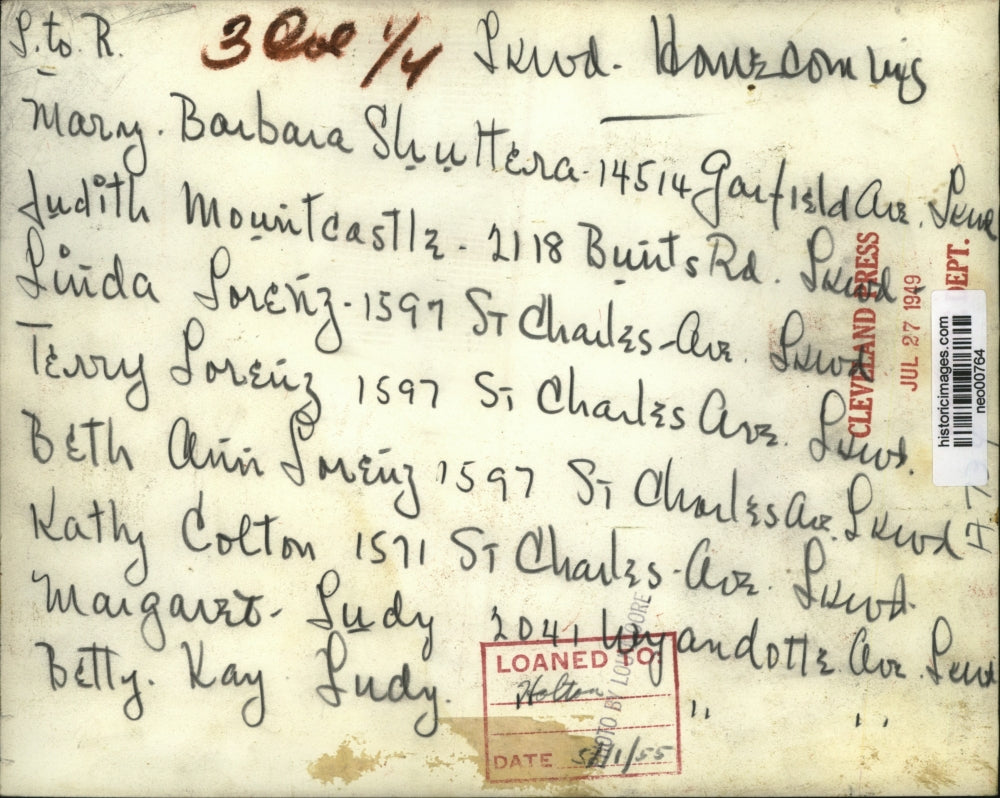 L. to R. 3 Col 1/4 Lkwd. Homecoming
Mary. Barbara Shuttera. 14514 Garfield Ave. Lkwd
Judith Mountcastle - 2118 Bunts Rd. Lkwd.
Linda Lorenz - 1597 St Charles - Ave. Lkwd
Terry Lorenz 1597 St Charles Ave. Lkwd.
Beth Ann Lorenz 1597 St Charles Ave. Lkwd
Kathy Colton 1571 St Charles - Ave. Lkwd.
Margaret - Ludy 2041 Wyandotte Ave. Lkwd
Betty. Kay Ludy. " "
CLEVELAND PRESS
JUL 27 1949
DEPT.
historicimages.com
neo00764
LOANED TO
Holton
DATE 5/11/55
PHOTO BY LOU MOORE